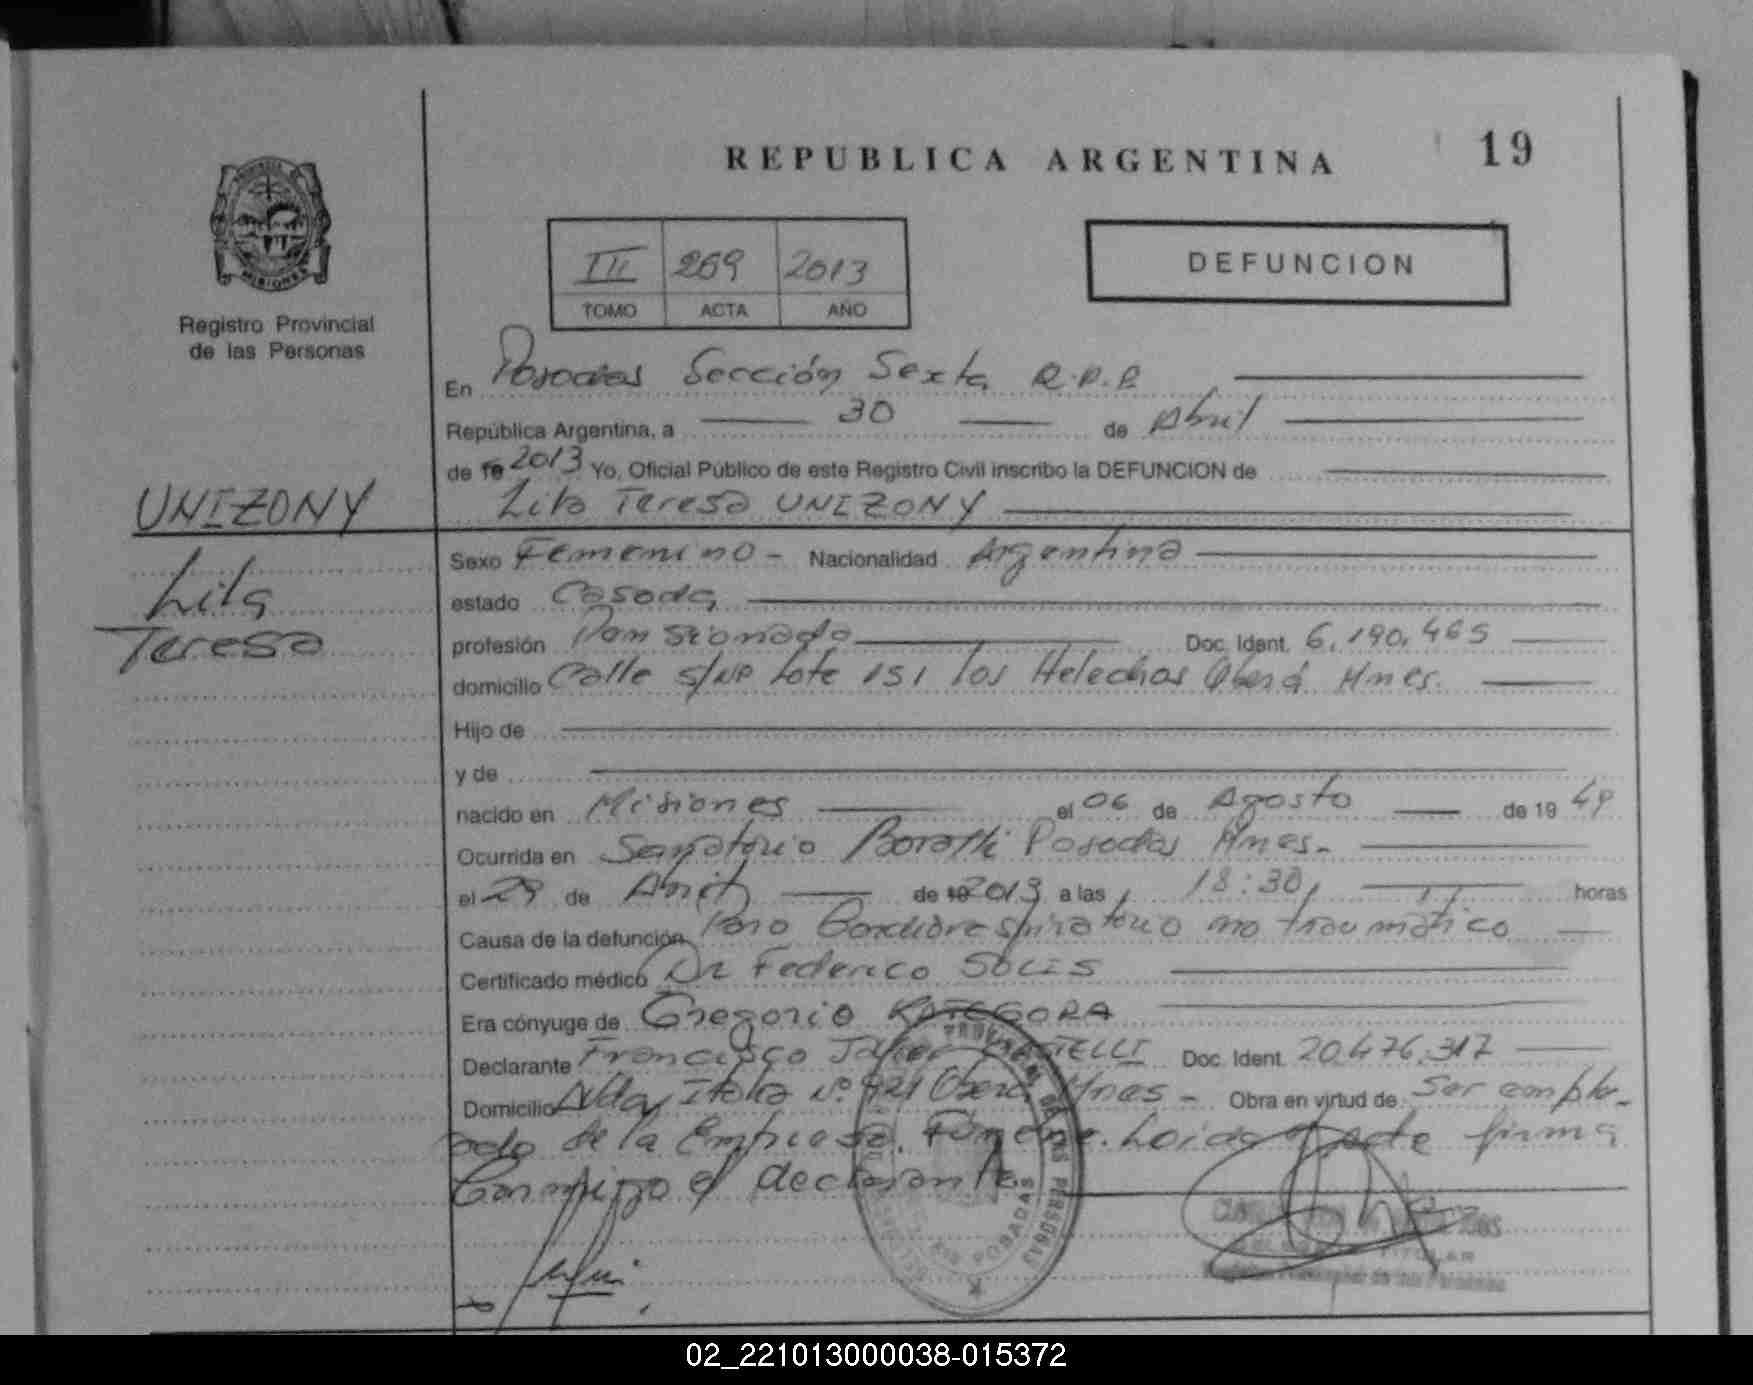 REPUBLICA ARGENTINA 19
III 269 2013
TOMO ACTA AÑO
DEFUNCION
PROVINCIA
MISIONES
Registro Provincial
de las Personas
En Posadas Sección Sexta R.P.P.
República Argentina, a 30 de Abril
de 19 2013 Yo, Oficial Público de este Registro Civil inscribo la DEFUNCION de
Lita Teresa UNIZONY
UNIZONY
Lita
Teresa
Sexo Femenino - Nacionalidad Argentina
estado Casada
profesión Pensionada Doc. Ident. 6.190.465
domicilio Calle s/Nº Lote 151 Los Helechos Oberá Mnes.
Hijo de
y de
nacido en Misiones el 06 de Agosto de 19 49
Ocurrida en Sanatorio Boratti Posadas Mnes.-
el 29 de Abril de 19 2013 a las 18:30 horas
Causa de la defunción Paro Cardiorespiratorio no traumático
Certificado médico Dr Federico SOLIS
Era cónyuge de Gregorio KATEGORA
Declarante Francisco Javier Doc. Ident. 20.476.317
Domicilio Avda Italia Nº 421 Oberá Mnes - Obra en virtud de Ser emplea-
ado de la Empresa Fúnebre. Leída el acta firma
Conmigo el declarante
PROVINCIAL DE LAS PERSONAS
POSADAS
TITULAR
Registro Provincial de las Personas
02_221013000038-015372